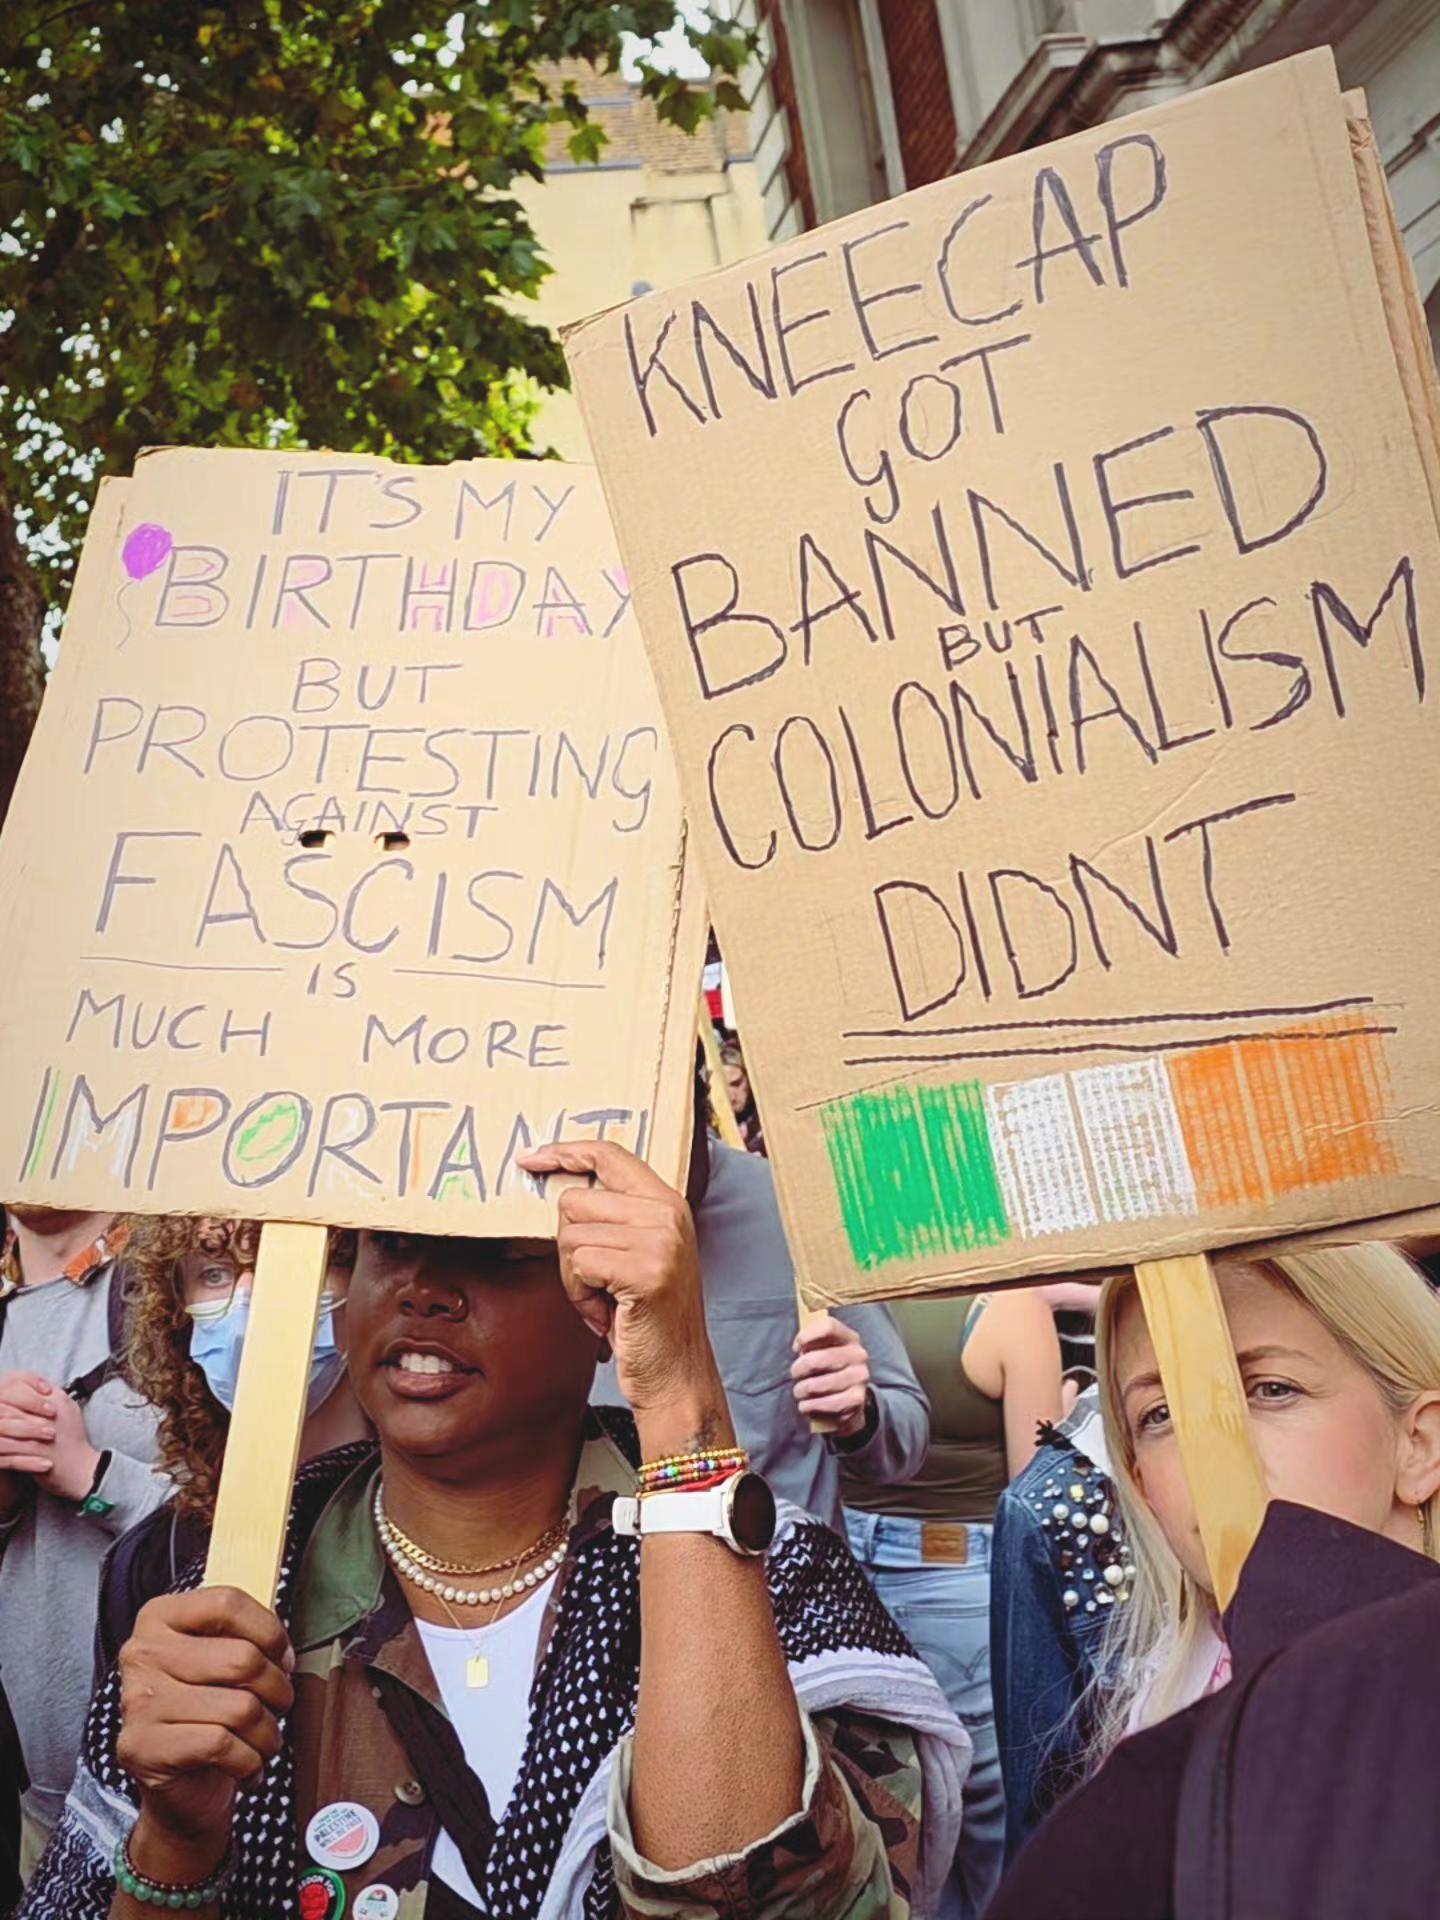 IT'S MY
BIRTHDAY
BUT
PROTESTING
AGAINST
FASCISM
IS
MUCH MORE
IMPORTANT!
KNEECAP
GOT
BANNED
BUT
COLONIALISM
DIDNT
PALESTINE